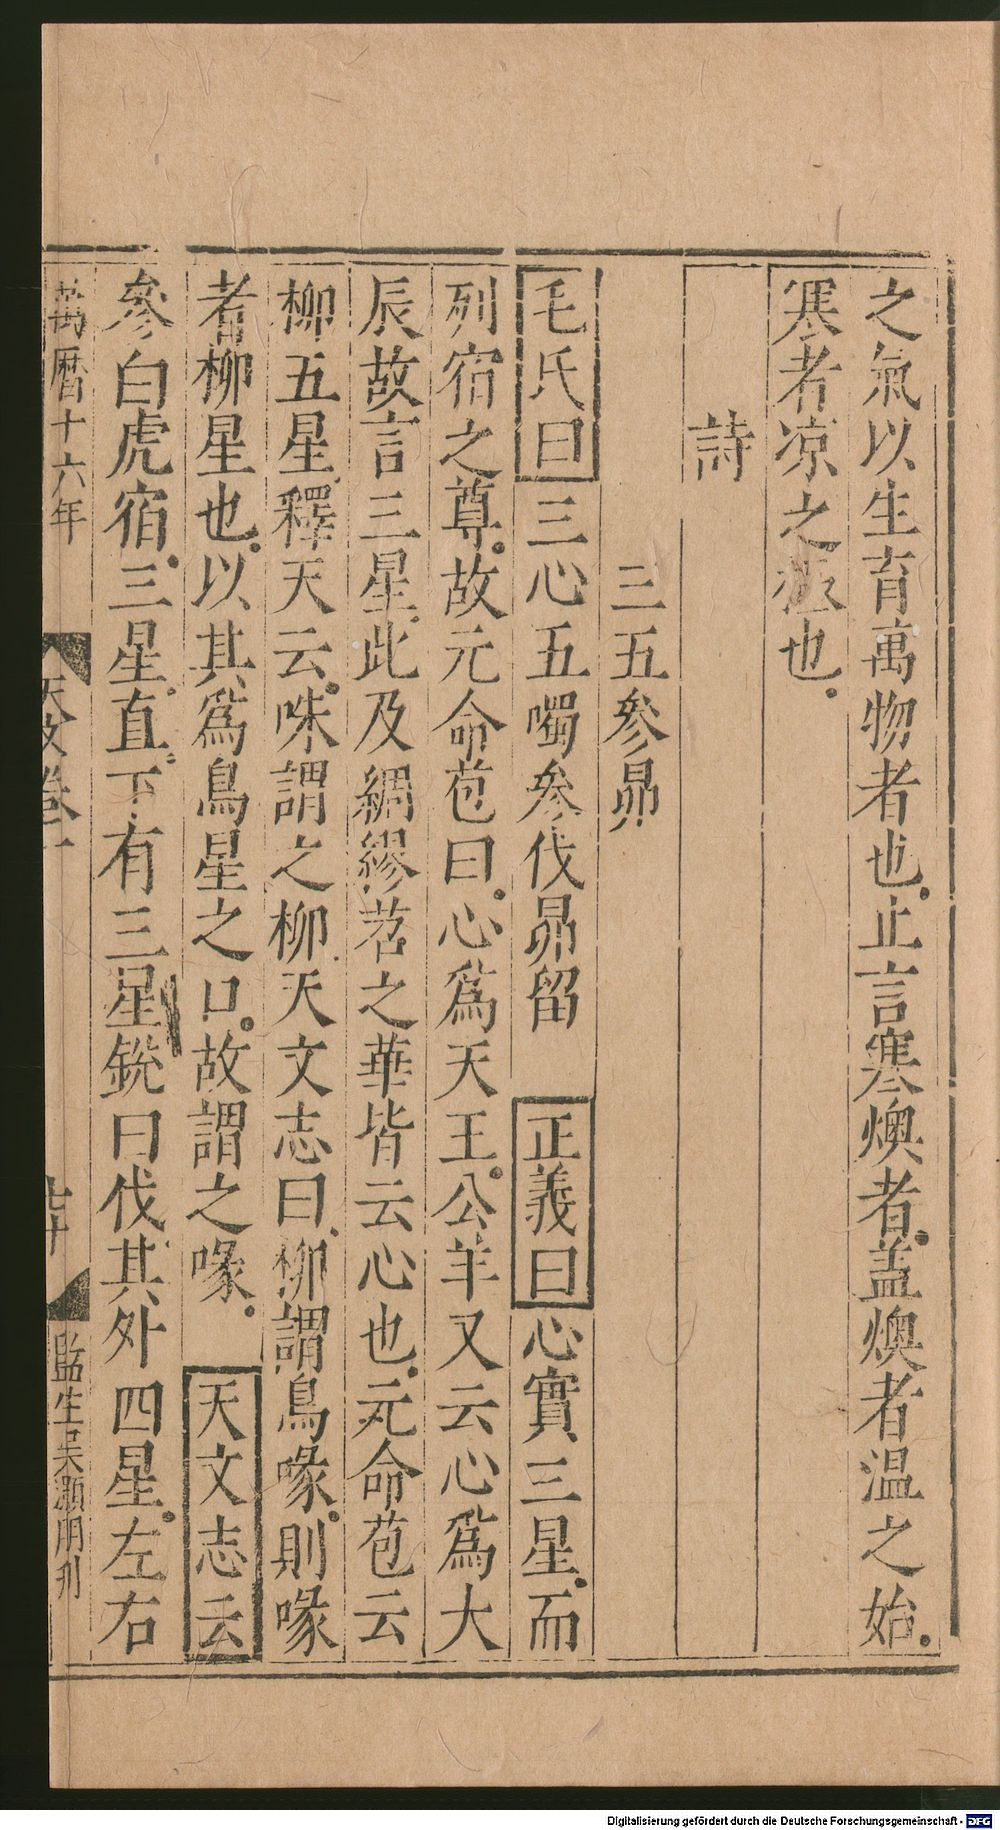 之氣以生育萬物者也止言寒燠者蓋燠者温之始
寒者凉之極也
詩
三五參昴
毛氏曰三心五噣參伐昴留　正義曰心實三星而
列宿之尊故元命苞曰心爲天王公羊又云心爲大
辰故言三星此及綢繆苕之華皆云心也元命苞云
柳五星釋天云咮謂之柳天文志曰柳謂鳥喙則喙
者柳星也以其爲鳥星之口故謂之喙　天文志云
參白虎宿三星直下有三星銳曰伐其外四星左右
萬曆十六年　天文卷一　七十　監生吴灝朋刋
Digitalisierung gefördert durch die Deutsche Forschungsgemeinschaft - DFG